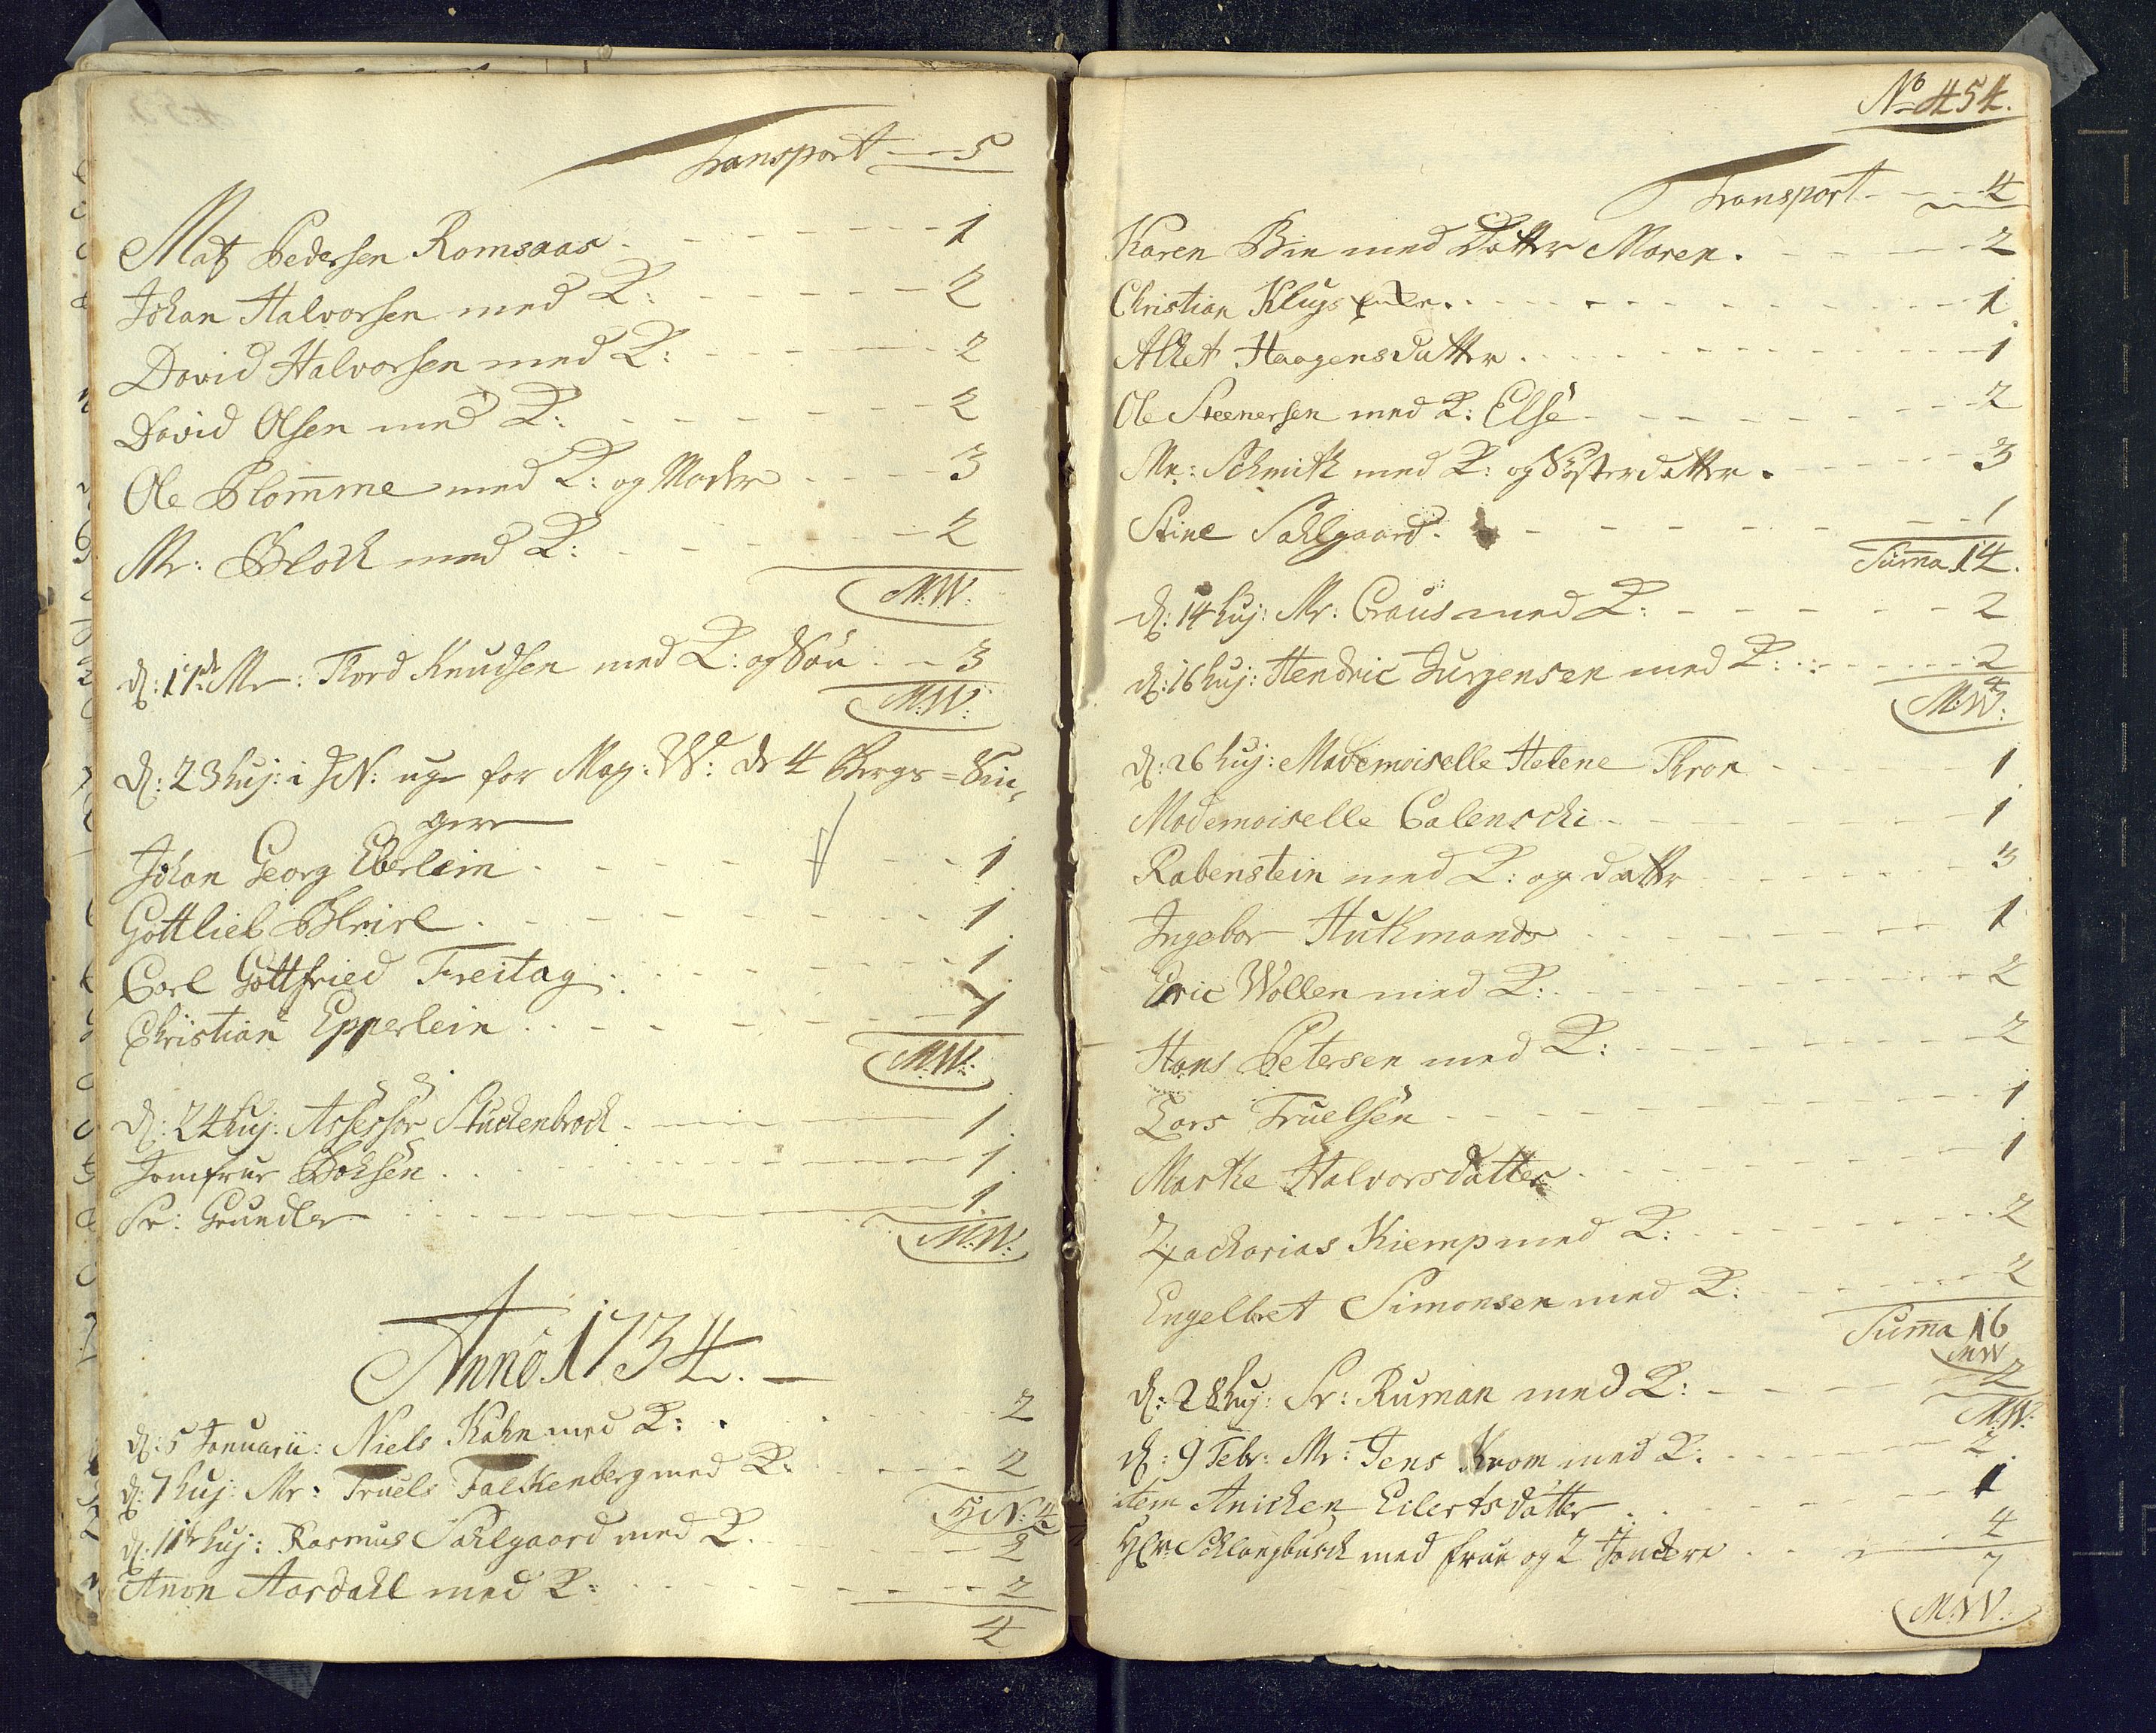 Transport - - 5
Mat Pedersen Romsaas - - - 1
Johan Halvorsen med K: - - - 2
David Halvorsen med K: - - - 2
David Olsen med K: - - - 2
Ole Blomme med K: og Moder - - - 3
Mr: Block med K: - - - 2
M:W:
d: 17de Mr: Thord Knudsen med K: og Søn - - 3
M:W:
d: 23 huj: i for Mag: W: de 4 Bergs=Sin,
gere
Johan Georg Eberlein - - - 1
Gottlieb - - - 1
Carl Gottfried Freitag - - - 1
Christian Epperlein - - - 1
M:W:
d: 24 huj: Assessor Stuckenbrock - - - 1
Jomfrue - - - 1
Sr: Gründler - - - 1
M:W:
Anno 1734.
d: 5 Januarii: Niels Kahn med K: - - - 2
d: 7 huj: Mr: Truels Falkenberg med K: - - - 2
H:N: 4
d: 11te huj: Rasmus Sahlgaard med K. - - - 2
Anon Aardahl med K: - - - 2
4
No 454.
Transport - - - 4
Karen med Datter Maren. - - - 2
Christian - - - 1
Alhet Haagensdatter. - - - 1
Ole Steenersen med K: Else - - - 2
Mr: Schmith med K: og Søsterdatter. - - - 3
Stine Sahlgaard. - - - 1
Suma 14.
d: 14 huj: Mr: Craus med K: - - - 2
d: 16 huj: Hendric Jurgensen med K: - - - 2
4
M:W:
d: 26 huj: Mademoiselle Helene Thron - - - 1
Mademoiselle Calenschi - - - 1
Rabenstein med K: og datter - - - 3
Ingebor Huthmands - - - 1
Eric Wollen med K: - - - 2
Hans Petersen med K: - - - 2
Lars Truelsen - - - 1
Marthe Halvorsdatter - - - 1
Zacharias Kiemp med K: - - - 2
Engelbret Simonsen med K: - - - 2
Suma 16
MW
d: 28 huj: Sr: Ruman med K: - - - 2
M:W:
d: 9 Febr: Mr: Jens Krom med K: - - - 2
item Anichen Eilertsdatter - - - 1
Schlangbusch med frue og 2 - - - 4
7
M:W: